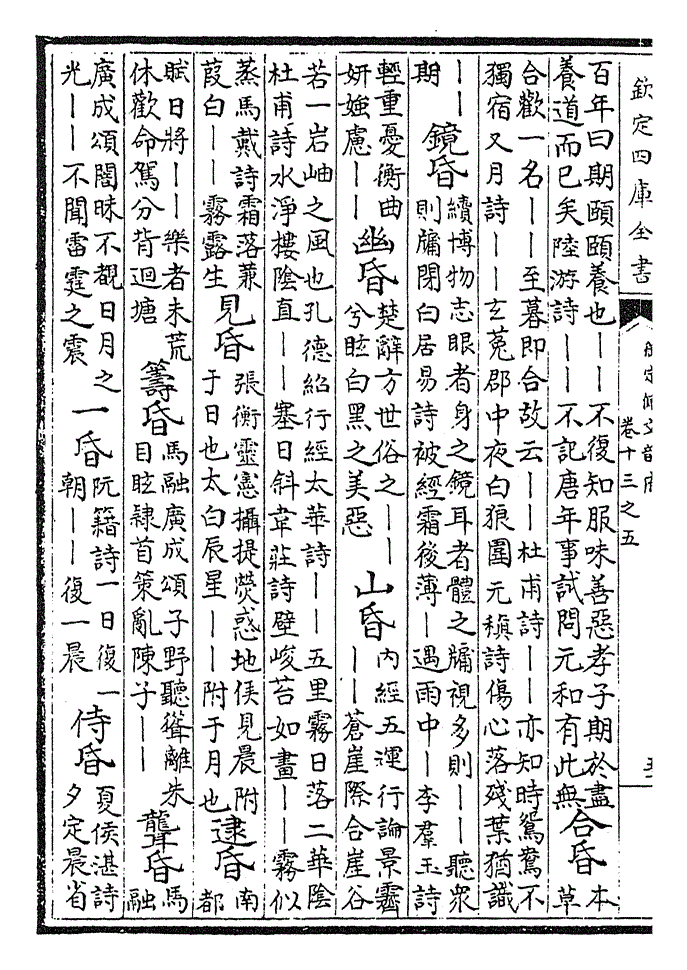 欽定四庫全書
御定佩文韻府
卷十三之五
五
百年曰期頤頤養也——不復知服味善惡孝子期於盡
養道而已矣陸游詩——不記唐年事試問元和有此無
合昏
本
草
合歡一名——至暮即合故云——杜甫詩——亦知時鴛鴦不
獨宿又月詩——玄菟郡中夜白狼圍元稹詩傷心落殘葉猶識
——
期
鏡昏
續博物志眼者身之鏡耳者體之牖視多則——聽衆
則牖閉白居易詩被經霜後薄—遇雨中—李羣玉詩
輕重憂衡曲
妍媸慮——
幽昏
楚辭方世俗之——
兮眩白黑之美惡
山昏
內經五運行論景霾
——蒼崖際合崖谷
若一岩岫之風也孔德紹行經太華詩——五里霧日落二華陰
杜甫詩水淨樓陰直——塞日斜韋莊詩壁峻苔如畫——霧似
蒸馬戴詩霜落蒹
葭白——霧露生
見昏
張衡靈憲攝提熒惑地侯見晨附
于日也太白辰星——附于月也
逮昏
南
都
賦日將——樂者未荒
休歡命駕分背迴塘
籌昏
馬融廣成頌子野聽聳離朱
目眩隸首策亂陳子——
聾昏
馬
融
廣成頌闇昧不覩日月之
光——不聞雷霆之震
一昏
阮籍詩一日復一
朝——復一晨
侍昏
夏侯湛詩
夕定晨省